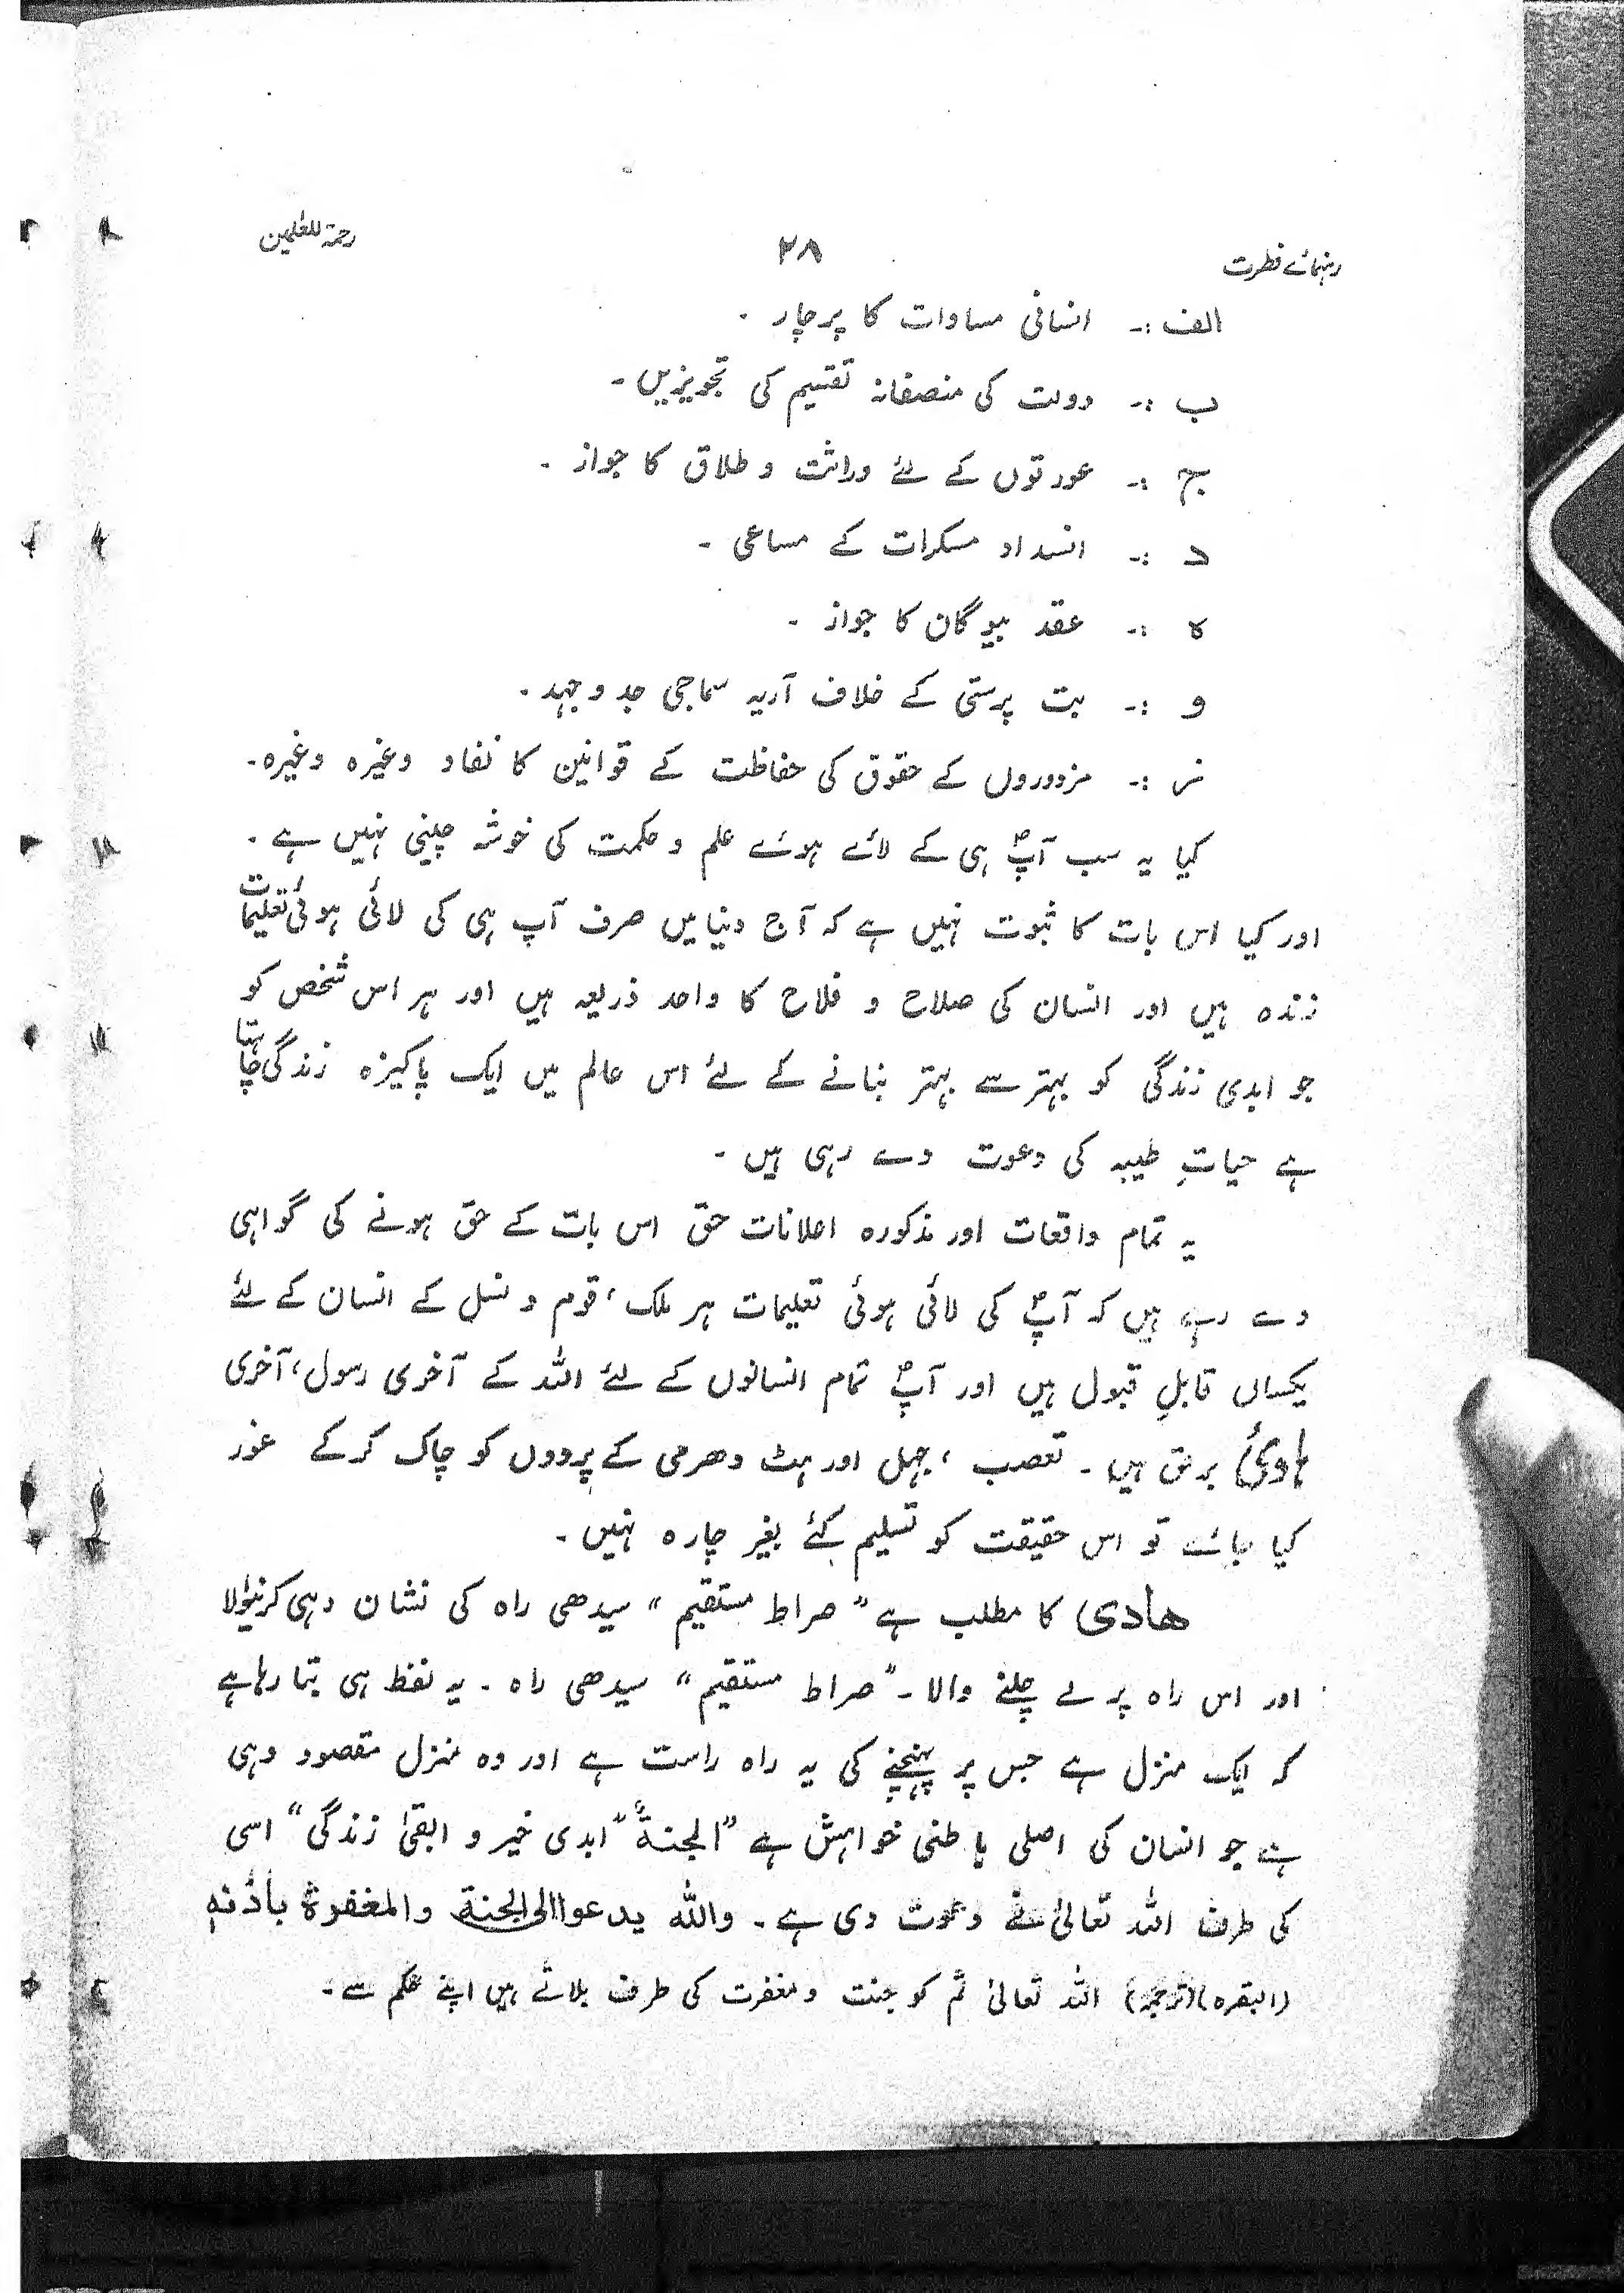 رہنمائے فطرت ۲۸ رحمۃ للعٰلمین
الف :۔ انسانی مساوات کا پرچار ۔
ب :۔ دولت کی منصفانہ تقسیم کی تجویزیں ۔
ج :۔ عورتوں کے لئے وراثت و طلاق کا جواز ۔
د :۔ انسداد مسکرات کے مساعی ۔
ہ :۔ عقد بیوگان کا جواز ۔
و :۔ بت پرستی کے خلاف آریہ سماجی جد و جہد ۔
ز :۔ مزدوروں کے حقوق کی حفاظت کے قوانین کا نفاد وغیرہ وغیرہ ۔
کیا یہ سب آپؐ ہی کے لائے ہوئے علم و حکمت کی خوشہ چینی نہیں ہے ۔
اور کیا اس بات کا ثبوت نہیں ہے کہ آج دنیا میں صرف آپ ہی کی لائی ہوئی تعلیمات
زندہ ہیں اور انسان کی صلاح و فلاح کا واحد ذریعہ ہیں اور ہر اس شخص کو
جو ابدی زندگی کو بہتر سے بہتر بنانے کے لئے اس عالم میں ایک پاکیزہ زندگی چاہتا
ہے حیاتِ طیبہ کی دعوت دے رہی ہیں ۔
یہ تمام واقعات اور مذکورہ اعلانات حق اس بات کے حق ہونے کی گواہی
دے رہے ہیں کہ آپؐ کی لائی ہوئی تعلیمات ہر ملک ، قوم و نسل کے انسان کے لئے
یکساں قابلِ قبول ہیں اور آپؐ تمام انسانوں کے لئے اللہ کے آخری رسول ، آخری
ہادیٔ برحق ہیں ۔ تعصب ، جہل اور ہٹ دھرمی کے پردوں کو چاک کر کے غور
کیا جائے تو اس حقیقت کو تسلیم کئے بغیر چارہ نہیں ۔
ھادی کا مطلب ہے ”صراط مستقیم“ سیدھی راہ کی نشان دہی کرنیوالا
اور اس راہ پر لے چلنے والا ۔ ”صراط مستقیم“ سیدھی راہ ۔ یہ لفظ ہی بتا رہا ہے
کہ ایک منزل ہے جس پر پہنچنے کی یہ راہ راست ہے اور وہ منزل مقصود وہی
ہے جو انسان کی اصلی باطنی خواہش ہے ”الجنۃ“ ”ابدی خیر و ابقیٰ زندگی“ اسی
کی طرف اللہ تعالیٰ نے دعوت دی ہے ۔ واللہ یدعوا الی الجنۃ والمغفرۃ باذنہ
(البقرہ) (ترجمہ) اللہ تعالیٰ تم کو جنت و مغفرت کی طرف بلاتے ہیں اپنے حکم سے ۔